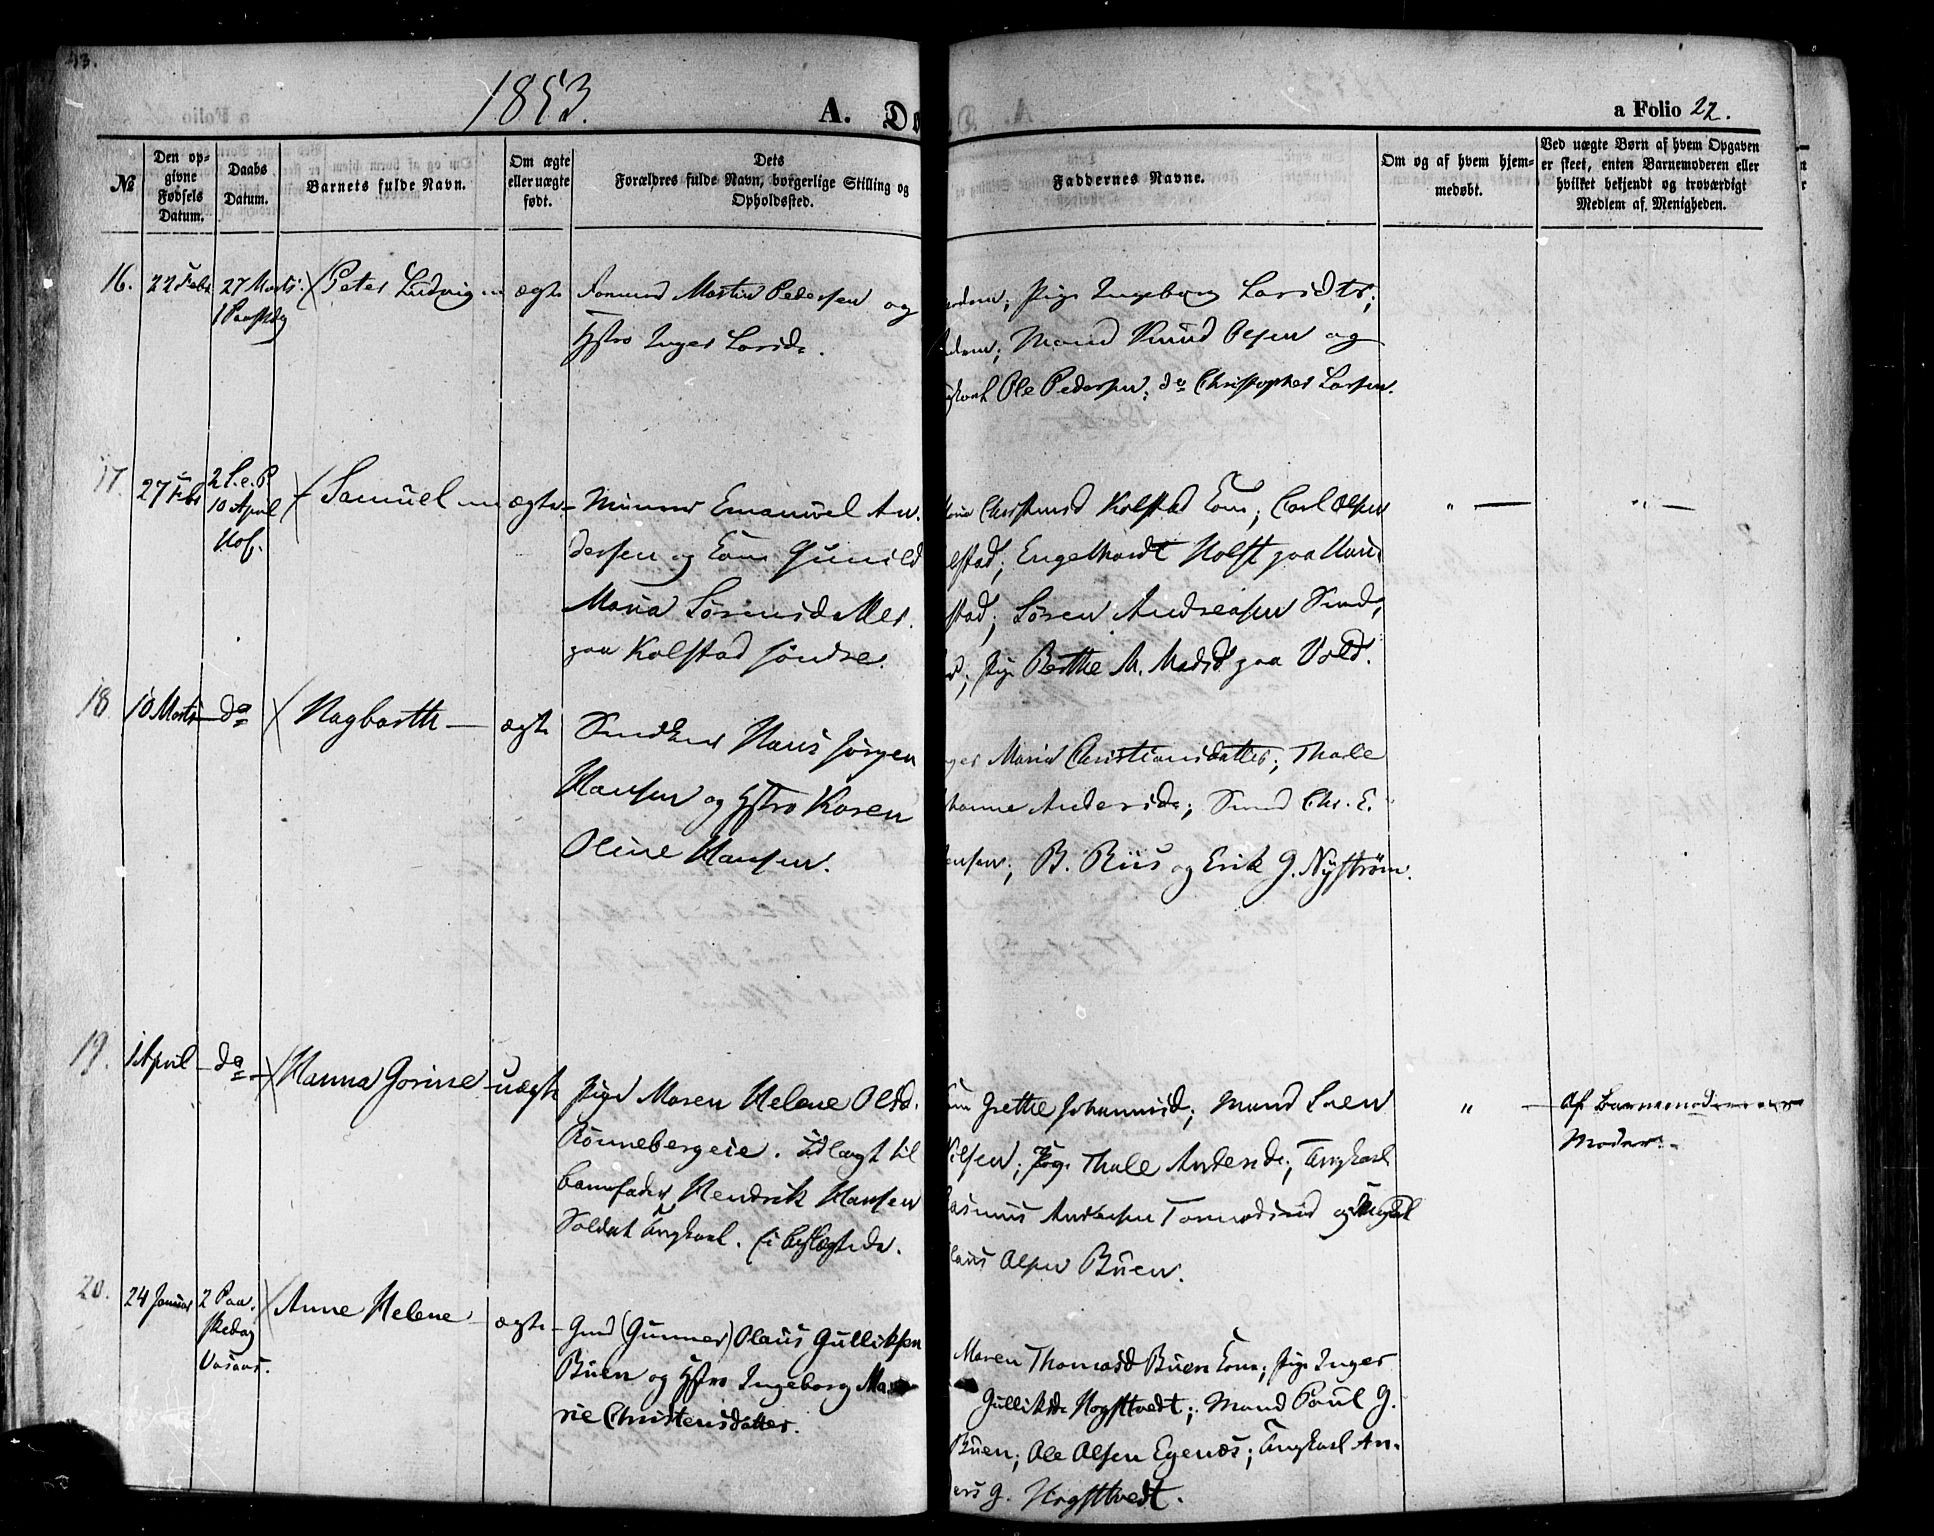 43.
1853.
A. Dø
a Folio 22.
№
Den op-
givne
Fødsels
Datum.
Daabs
Datum.
Barnets fulde Navn.
Om ægte
eller uægte
født.
Dets
Forældres fulde Navn, borgerlige Stilling og
Opholdssted.
Faddernes Navne.
Om og af hvem hjem-
medøbt.
Ved uægte Børn af hvem Opgaven
er skeet, enten Barnemoderen eller
hvilket bekjendt og troværdigt
Medlem af Menigheden.
16.
22 Febr
27 Marts
1 Paaskdg
Peter Ludvig
ægte
Martin Pedersen og
Hstro Inger Larsd.
Pige Ingeborg Larsdtr;
Mand Knud Olsen og
Ole Pedersen; do Christopher Larsen.
17.
27 Febr
2 S. e. P
10 April
Hof.
Samuel
ægte
Murmer Emanuel An-
dersen og Kone Gunild
Maria Sørensdatter
paa Kolstad søndre.
Christensd Kolstad Kone; Carl Olsen
lstad; Engelhardt Holst paa Hau
stad; Søren Andreasen Sand,
Pige Berthe M. Madsd paa Vold.
18
10 Marts
da
Hagbarth
ægte
Snedker Hans Jørgen
Hansen og Hstro Karen
Oline Hansen.
Maria Christiansdatter; Thale
hanne Andersd; Smed Chr. E.
ensen; B. Riis og Erik G. Nyström.
19.
1 April
da
Hanna Gorine
uægte
Pige Maren Helene Olsd.
Rønnebergeie. Udlagt til
barnefader Hendrik Hansen
Soldat Ungkarl. (i beslægtede.
Grethe Johannesd; Mand Lars
Nilsen; Pige Thale Andersd; Ungkarl
Rasmus Andersen og Ungkarl
laus Olsen Buen.
"
Af Barnemoderen
Moder.
20.
24 Januar
2 Paa-
skedag
Vasaas.
Anne Helene
ægte
Gmd (Gunner) Olaus Gulliksen
Buen og Hstro Ingeborg Ma-
rie Christensdatter.
Maren Thomasd Buen Kone; Pige Inger
Gulliksd Hogstvedt; Mand Paul G.
Buen; Ole Olsen Egenæs; Ungkarl An-
ders G. Hogstvedt.